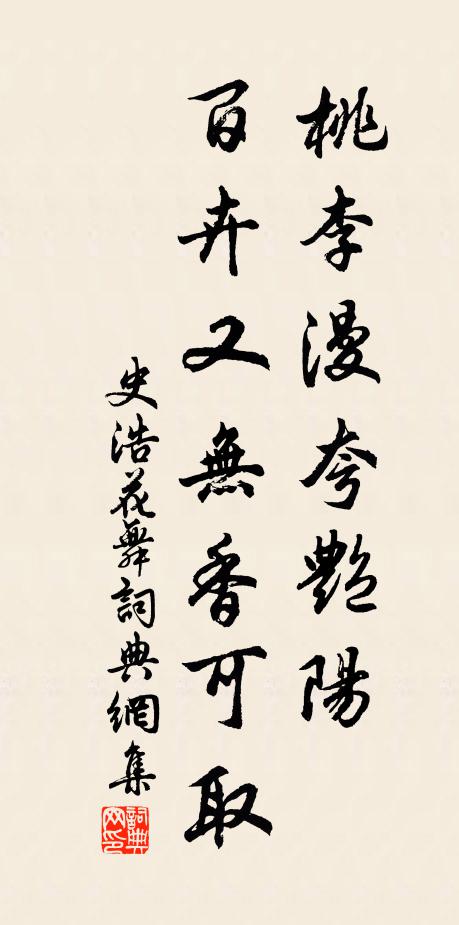 桃李漫夸艷陽
百卉又無香可取
史浩花舞詞典網集
詞典網印